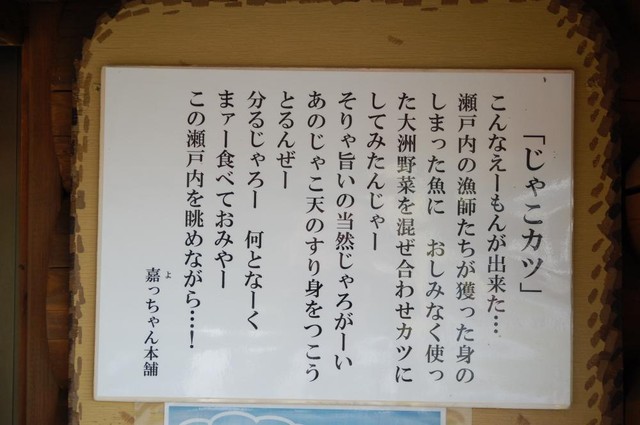 「じゃこカツ」
こんなえーもんが出来た…
瀬戸内の漁師たちが獲った身の
しまった魚に　おしみなく使っ
た大洲野菜を混ぜ合わせカツに
してみたんじゃー
そりゃ旨いの当然じゃろがーい
あのじゃこ天のすり身をつこう
とるんぜー
分るじゃろー　何となーく
まァー食べておみやー
この瀬戸内を眺めながら…！
嘉っちゃん本舗
よ